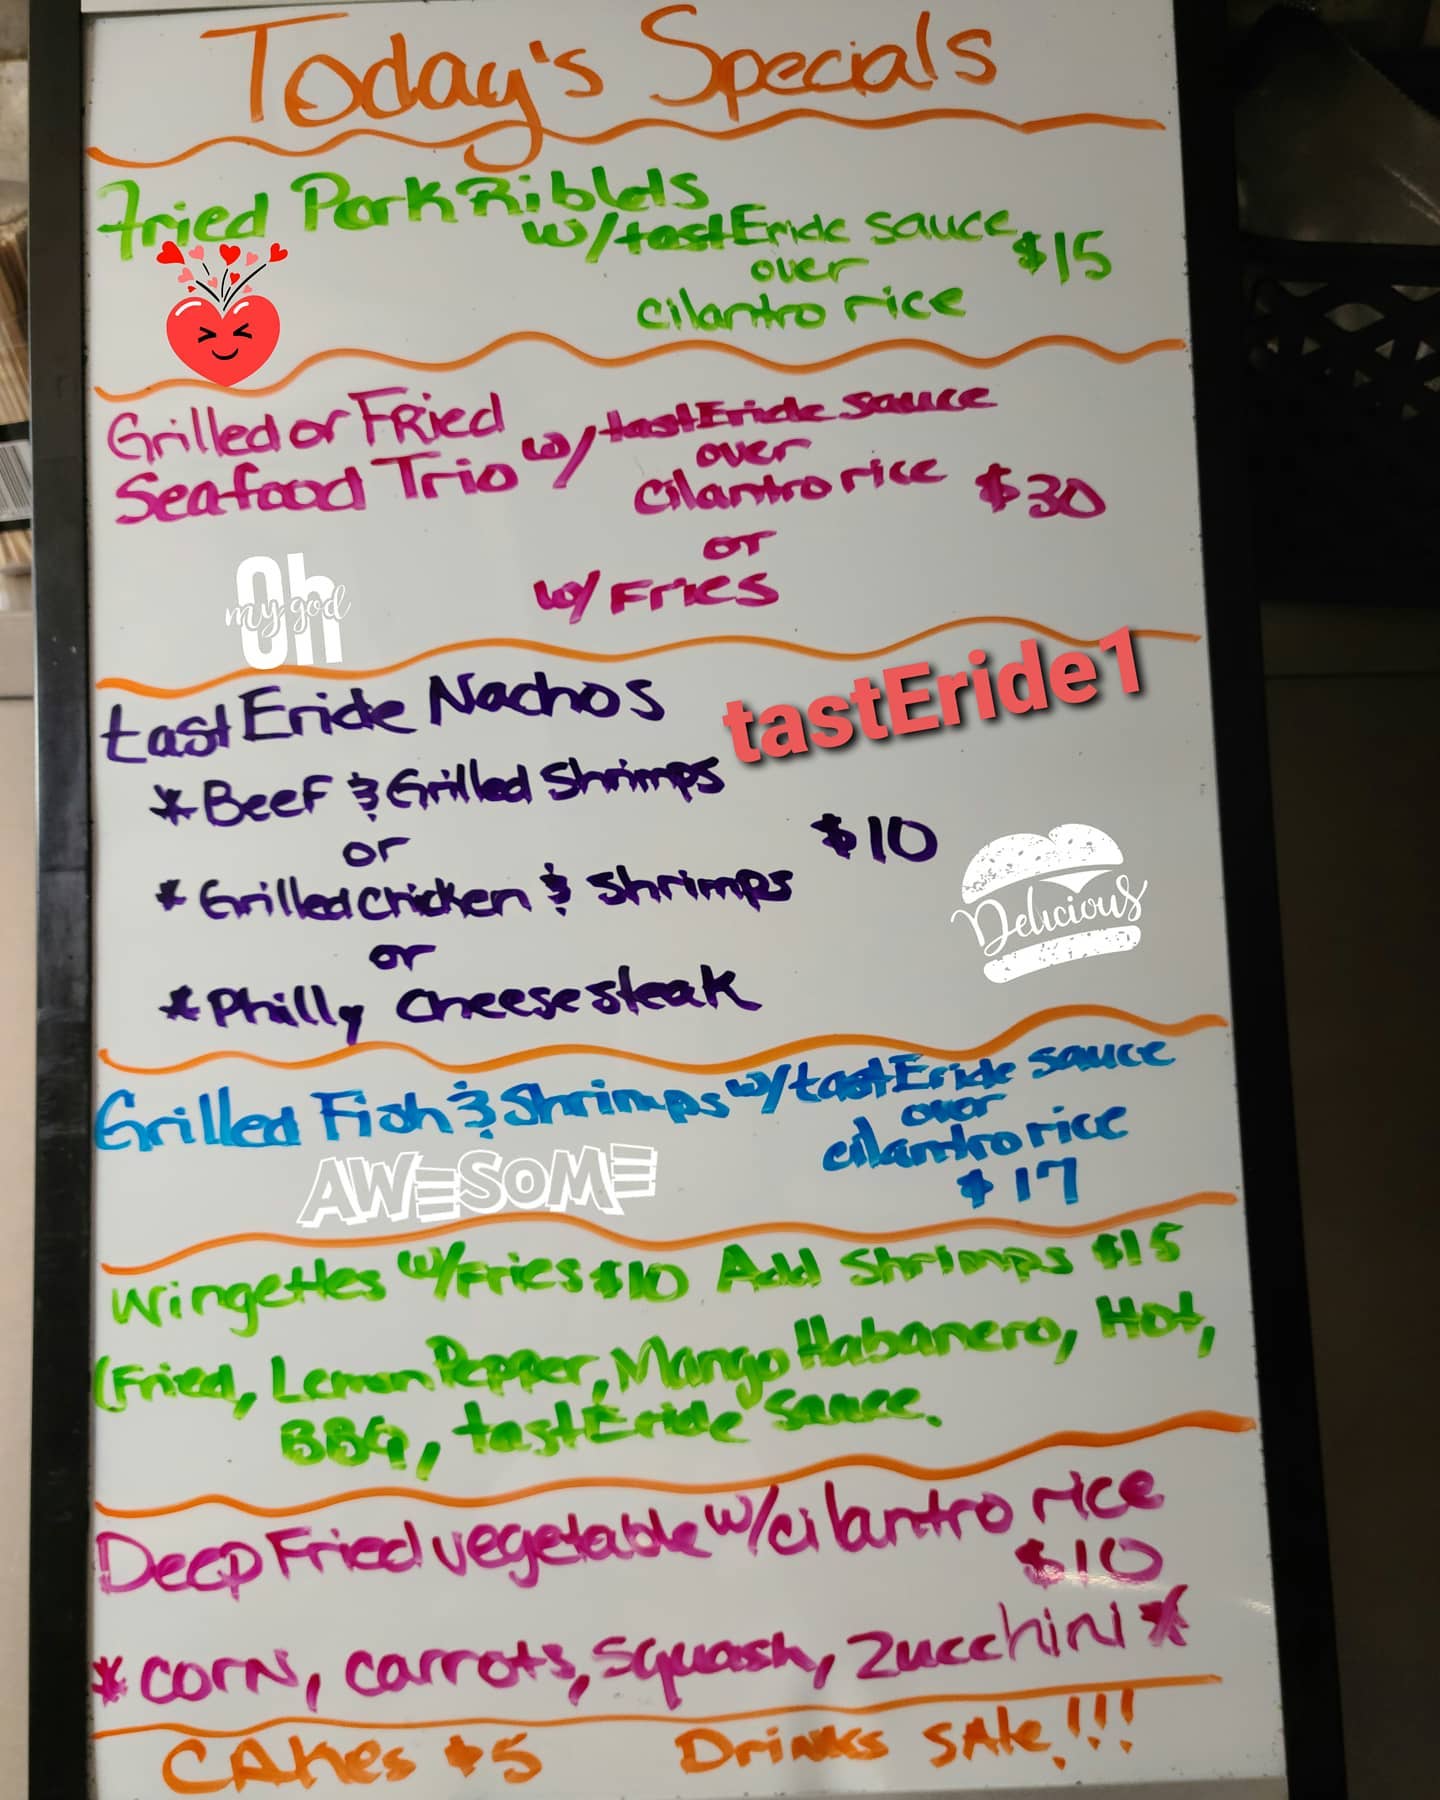 Today's Specials
Fried Pork Riblets
w/tastEride sauce $15
over
cilantro rice
Grilled or FRied
Seafood Trio w/ tastEride sauce
over
cilantro rice $30
or
w/ Fries
Oh
my god
tastEride Nachos
tastEride1
*Beef & Grilled Shrimps
or
$10
* Grilled chicken & shrimps
or
*Philly cheese steak
Delicious
Grilled Fish & Shrimps w/tastEride sauce
over
cilantro rice
$17
AWESOME
Wingettes w/Fries $10 Add Shrimps $15
(Fried, Lemon Pepper, Mango Habanero, Hot,
BBQ, tastEride sauce.
Deep Fried vegetable w/cilantro rice
$10
*CORN, carrots, squash, zucchini*
CAkes $5 Drinks SAle!!!